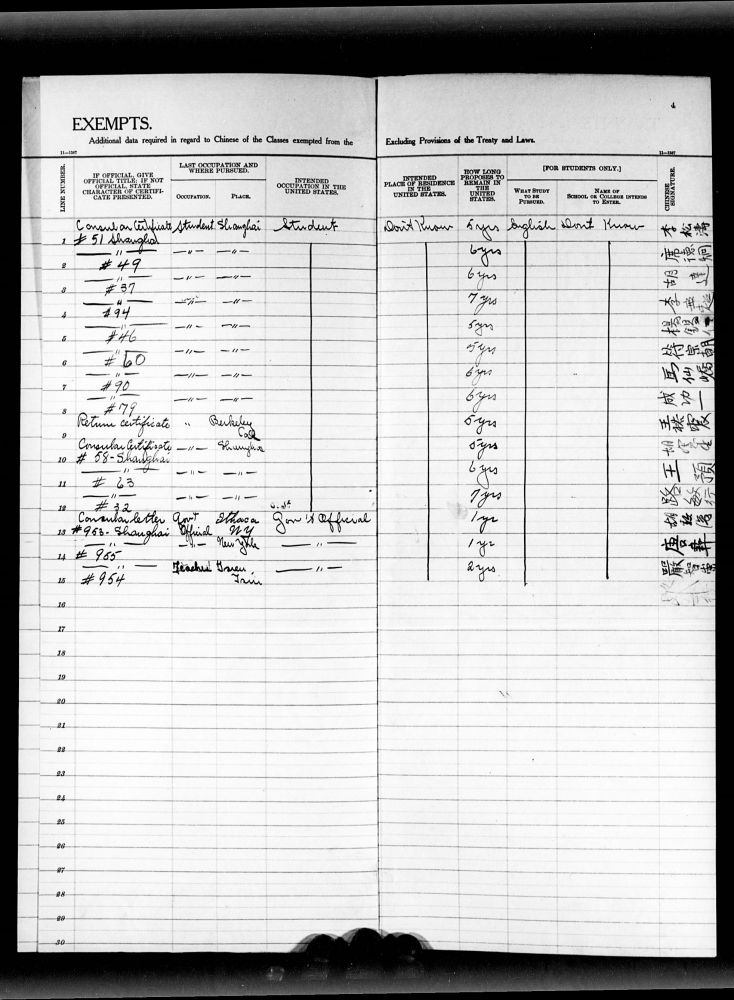 4
EXEMPTS.
Additional data required in regard to Chinese of the Classes exempted from the Excluding Provisions of the Treaty and Laws.
11—1567 11—1567
LINE NUMBER.
IF OFFICIAL, GIVE OFFICIAL TITLE; IF NOT OFFICIAL, STATE CHARACTER OF CERTIFICATE PRESENTED.
LAST OCCUPATION AND WHERE PURSUED.
OCCUPATION. PLACE.
INTENDED OCCUPATION IN THE UNITED STATES.
INTENDED PLACE OF RESIDENCE IN THE UNITED STATES.
HOW LONG PROPOSES TO REMAIN IN THE UNITED STATES.
[FOR STUDENTS ONLY.]
WHAT STUDY TO BE PURSUED.
NAME OF SCHOOL OR COLLEGE INTENDS TO ENTER.
CHINESE SIGNATURE.
Consular Certificate Student Shanghai Student Don't Know 5 yrs English Dont Know 李松濤
1 # 51 Shanghai
—〃— —〃— —〃— 6 yrs 席德炯
2 # 49
—〃— —〃— —〃— 6 yrs 胡達
3 # 37
—〃— —〃— —〃— 7 yrs 李
4 # 94
—〃— —〃— —〃— 5 yrs 楊
5 # 46
—〃— —〃— —〃— 5 yrs 符宗朝
6 # 60
—〃— —〃— —〃— 6 yrs 馬仙嶠
7 # 90
—〃— —〃— —〃— 6 yrs 成功一
8 # 79
Return certificate 〃 Berkeley 5 yrs 王
9 Cal
Consular Certificate —〃— Shanghai 5 yrs 胡
10 # 58 - Shanghai
—〃— —〃— —〃— 6 yrs 王預
11 # 63
—〃— —〃— —〃— 7 yrs 路敏行
12 # 32
Consular letter Gov't Ithaca Gov't Official 1 yr 胡
13 # 953 - Shanghai Official N.Y.
—〃— —〃— New York —〃— 1 yr 唐彝
14 # 955
—〃— Teacher Tsien —〃— 2 yrs 嚴智
15 # 954 Tsin
16
17
18
19
20
21
22
23
24
25
26
27
28
29
30